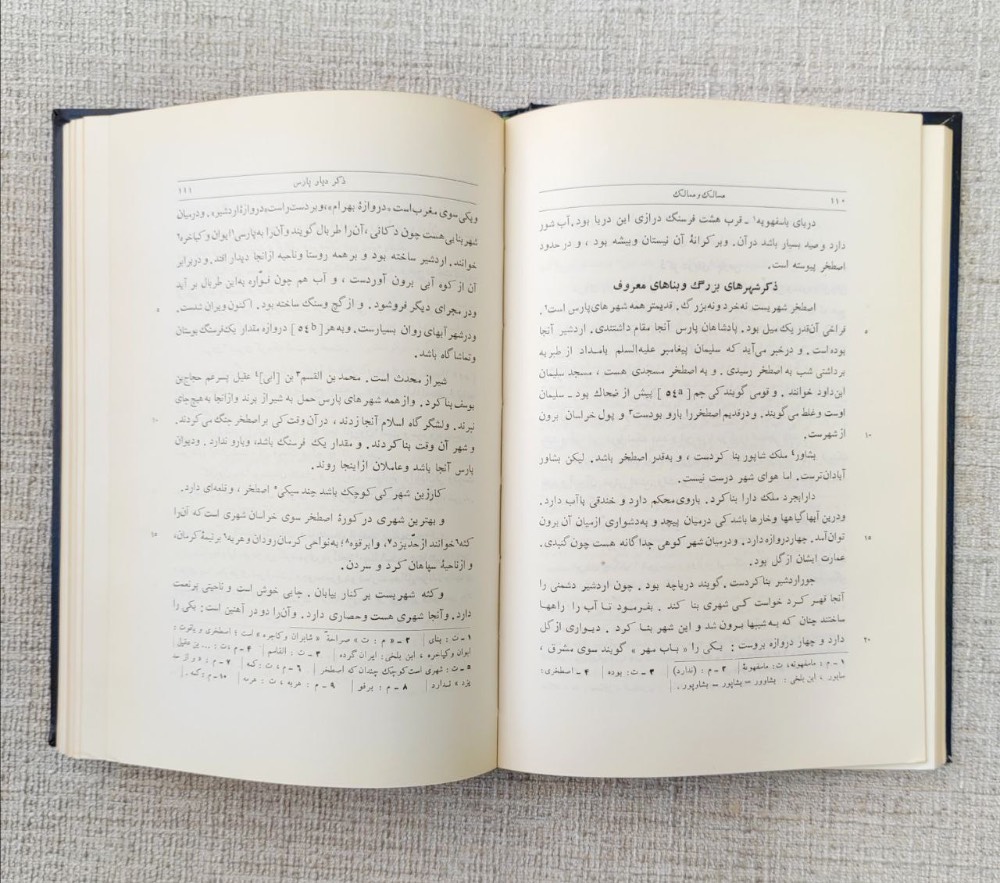 مسالك و ممالك
۱۱۰
دریای باسفهویه۱ ـ قرب هشت فرسنگ درازی این دریا بود. آب شور
دارد و صید بسیار باشد در آن . و بر کرانهٔ آن نیستان و بیشه بود ، و در حدود
اصطخر پیوسته است.
ذکر شهرهای بزرگ و بناهای معروف
اصطخر شهریست نه خرد و نه بزرگ . قدیمتر همه شهرهای پارس است۲.
۵
فراخی آن قدر یک میل بود . پادشاهان پارس آنجا مقام داشتندی . اردشیر آنجا
بوده است . و در خبر می‌آید که سلیمان پیغامبر علیه‌السلم بامداد از طبریه
برداشتی شب به اصطخر رسیدی . و به اصطخر مسجدی هست ، مسجد سلیمان
ابن داود خوانند . و قومی گویند کی جم [٥٤a] پیش از ضحاك بود ـ سلیمان
اوست و غلط می‌گویند . و در قدیم اصطخر را بارو بودست۳ و پول خراسان برون
۱۰
از شهرست.
بشاور۴ ملك شاپور بنا کردست ، و به‌قدر اصطخر باشد . لیکن بشاور
آبادان‌ترست. اما هوای شهر درست نیست.
دارابجرد ملك دارا بنا کرد. باروی محکم دارد و خندقی با آب دارد.
و درین آبها گیاهها و خارها باشد کی در میان پیچد و به‌دشواری از میان آن برون
۱۵
توان آمد. چهار دروازه دارد . و در میان شهر کوهی جداگانه هست چون گنبدی.
عمارت ایشان از گل بود.
جور اردشیر بنا کردست. گویند دریاچه بود . چون اردشیر دشمنی را
آنجا قهر کرد خواست کی شهری بنا کند . بفرمود تا آب را راهها
ساختند چنان که به شیبها برون شد و این شهر بنا کرد . دیواری از گل
۲۰
دارد و چهار دروازه بروست: یکی را «باب مهر» گویند سوی مشرق ،
۱ ـ م : ماسفهونه، ت: مامفهونهٔ | ۲ ـ م : (ندارد) | ۳ ـ ت: بوده | ۴ ـ اصطخری:
سابور ، ابن بلخی : بشاوور = بشاپور = بشاپور .
ذکر دیار پارس
۱۱۱
و یکی سوی مغرب است «دروازهٔ بهرام»، و بر دست راست «دروازهٔ اردشیر» . و در میان
شهر بنایی هست چون دکانی ، آن را طربال گویند و آن را به پارسی۱ ایوان و کیاخره۲
خوانند . اردشیر ساخته بود و بر همه روستا و ناحیه از آنجا دیدار افتد . و در برابر
آن از کوه آبی برون آوردست ، و آب هم چون فوّاره به این طربال بر آید
و در مجرای دیگر فرو شود . و از گچ و سنگ ساخته بود . اکنون ویران شدست .
۵
و در شهر آبهای روان بسیارست. و به هر [٥٤b] دروازه مقدار یک فرسنگ بوستان
و تماشاگاه باشد.
شیراز محدث است . محمد بن القسم۳ بن [ابی]۴ عقیل پسر عم حجاج بن
یوسف بنا کرد . و از همه شهرهای پارس حمل به شیراز برند و از آنجا به هیچ جای
نبرند . و لشکر گاه اسلام آنجا زدند ، در آن وقت کی بر اصطخر جنگ می‌کردند.
۱۰
و شهر آن وقت بنا کردند . و مقدار یک فرسنگ باشد، و بارو ندارد . و دیوان
پارس آنجا باشد و عاملان از اینجا روند.
کارزین شهر کی کوچك باشد چند سیکی۵ اصطخر ، و قلعه‌ای دارد.
و بهترین شهری در کورهٔ اصطخر سوی خراسان شهری است که آن را
کثه۶ خوانند از حدّ یزد۷، و ابرقوه۸؛ به نواحی کرمان رودان و هریه۹ بر تیمهٔ کرمان،
۱۵
و از ناحیهٔ سپاهان کرد و سردن.
و کثه شهریست بر کنار بیابان . جایی خوش است و ناحیتی پرنعمت
دارد. و آنجا شهری هست و حصاری دارد . و آن را دو در آهنین است: یکی را
۱ ـ ت: بنای | ۲ ـ م : ت «صراحهٔ» « شایران و کاجره » است ؛ اصطخری و یاقوت :
ایران و کیاخره ، ابن بلخی: ایران گرده | ۳ ـ ت: القاسم | ۴ ـ م، ت : ... بن عقیل
۵ ـ ت: شهری است کوچك چندان که اصطخر | ۶ ـ م، ت: کنه | ۷ ـ م : « و از حد
یزد » ندارد | ۸ ـ م : برقو | ۹ ـ م : هربه ، ت : هرمه | ۱۰ ـ م : کنه .